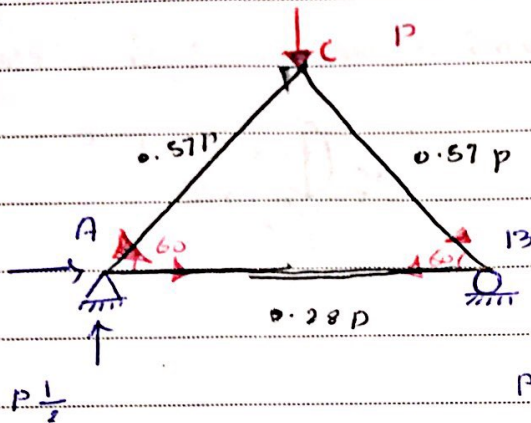 C P
0.57P 0.57 P
A 60 60 B
0.28 P
P 1/2 P